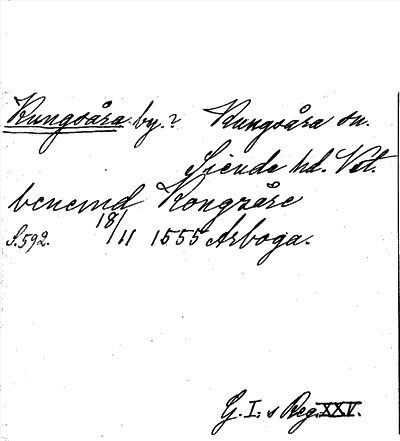 Kungsåra by.? Kungsåra sn.
Siende hd. Vst.
benemd Kongzåre
S. 592. 18/11 1555 Arboga.
G. I:s Reg. XXV.